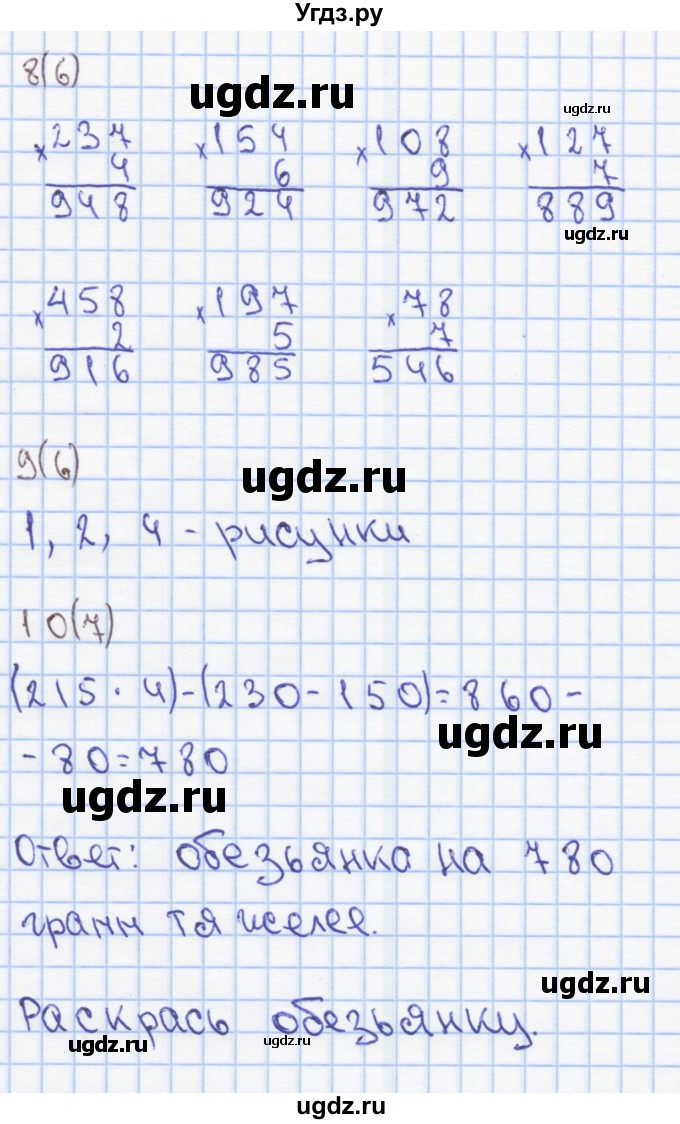 Угдз.ру
8(6)
ugdz.ru
ugdz.ru
× 237 × 154 × 108 × 127
4 6 9 7
948 924 972 889
ugdz.ru
× 458 × 197 × 78
2 5 7
916 985 546
9(6)
ugdz.ru
1, 2, 4 - рисунки
10(7)
(215 · 4) - (230 - 150) = 860 -
ugdz.ru
- 80 = 780
ugdz.ru
Ответ: обезьянка на 780
грамм тяжелее.
ugdz.ru
Раскрась обезьянку.
ugdz.ru
ugdz.ru
ugdz.ru